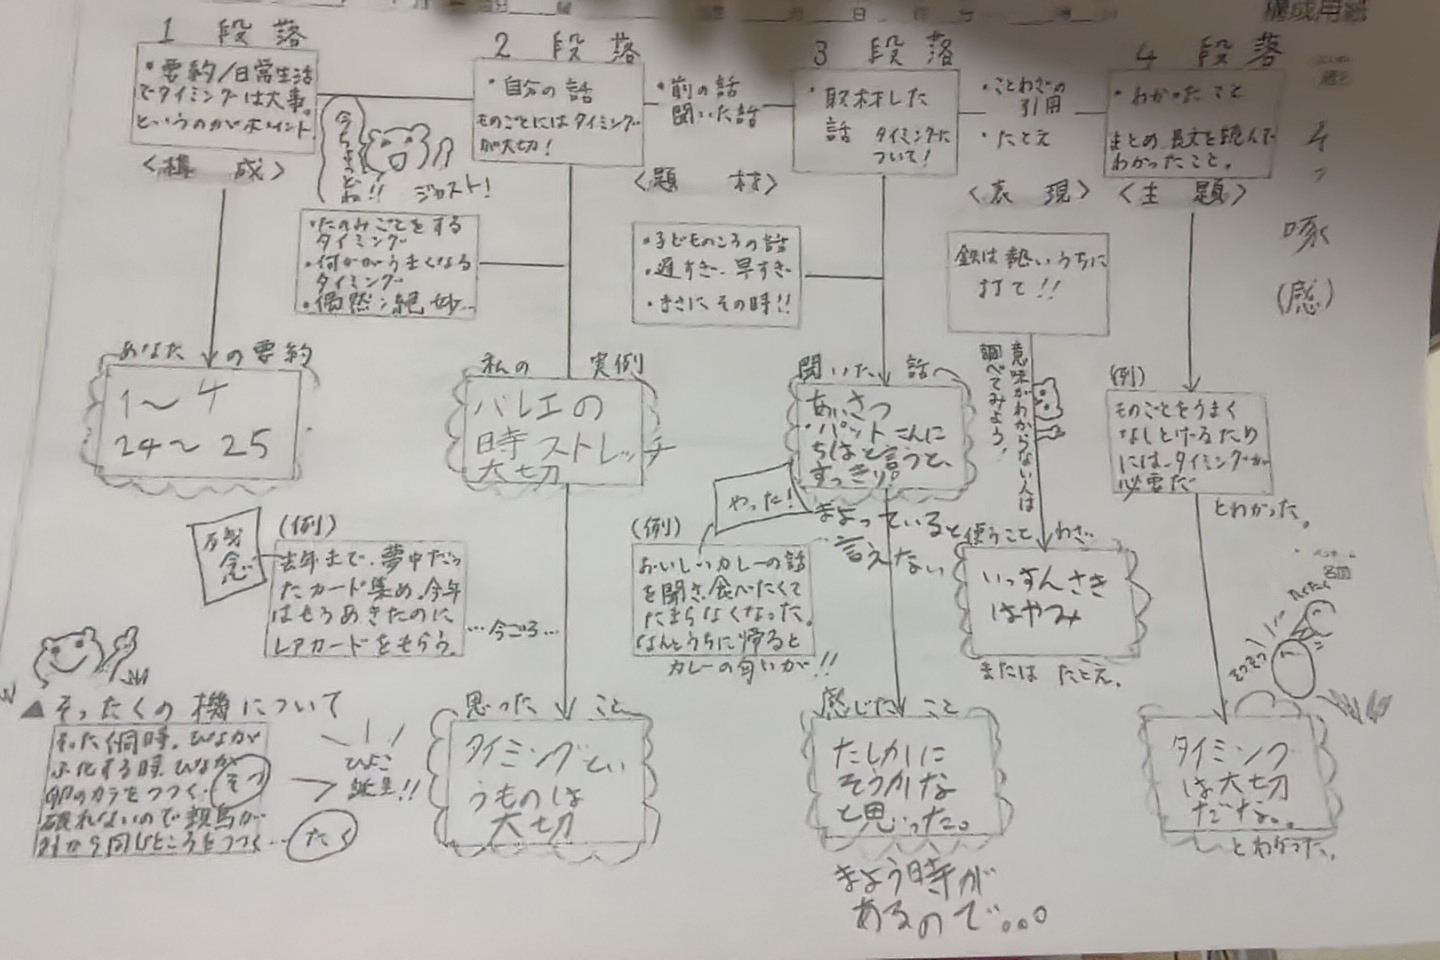 構成用紙
1 段落
・要約/日常生活
でタイミングは大事。
というのがポイント。
<構 成>
今ちょうどね!!
ジャスト!
・たのみごとをする
タイミング
・何かがうまくなる
タイミング
・偶然:絶妙…
あなたの要約
1〜4
24〜25
2 段落
・自分の話
ものごとにはタイミング
が大切!
・前の話
聞いた話
<題 材>
・子どものころの話
・遅すぎ・早すぎ
・まさにその時!!
私の 実例
バレエの
時ストレッチ
大切
残念
(例)
去年まで、夢中だっ
たカード集め。今年
はもうあきたのに
レアカードをもらう。
…今ごろ…
思ったこと
タイミングとい
うものは
大切
3 段落
・取材した
話 タイミングに
ついて!
・ことわざの
引用
・たとえ
<表 現>
鉄は熱いうちに
打て!!
意味がわからない人は
調べてみよう!
聞いた 話
あいさつ
・パットこんに
ちはと言うと、
すっきり!
まよっていると
言えない
やった!
(例)
おいしいカレーの話
を聞き、食べたくて
たまらなくなった。
なんとうちに帰ると
カレーの匂いが!!
使うことわざ
いっすんさき
はやみ
または たとえ。
感じたこと
たしかに
そうかな
と思った。
まよう時が
あるので。。。
4 段落
・わかったこと
まとめ 長文を読んで
わかったこと。
<主 題>
啄
(感)
(例)
ものごとをうまく
なしとげるため
には、タイミングが
必要だ
とわかった。
名前
タイミング
は大切
だな。
とわかった。
▲そったくの機について
そったく同時。ひなが
ふ化する時、ひなが
卵のカラをつつく。そつ
破れないので親鳥が
外から同じところをつつく…たく
ひよこ
誕生!!